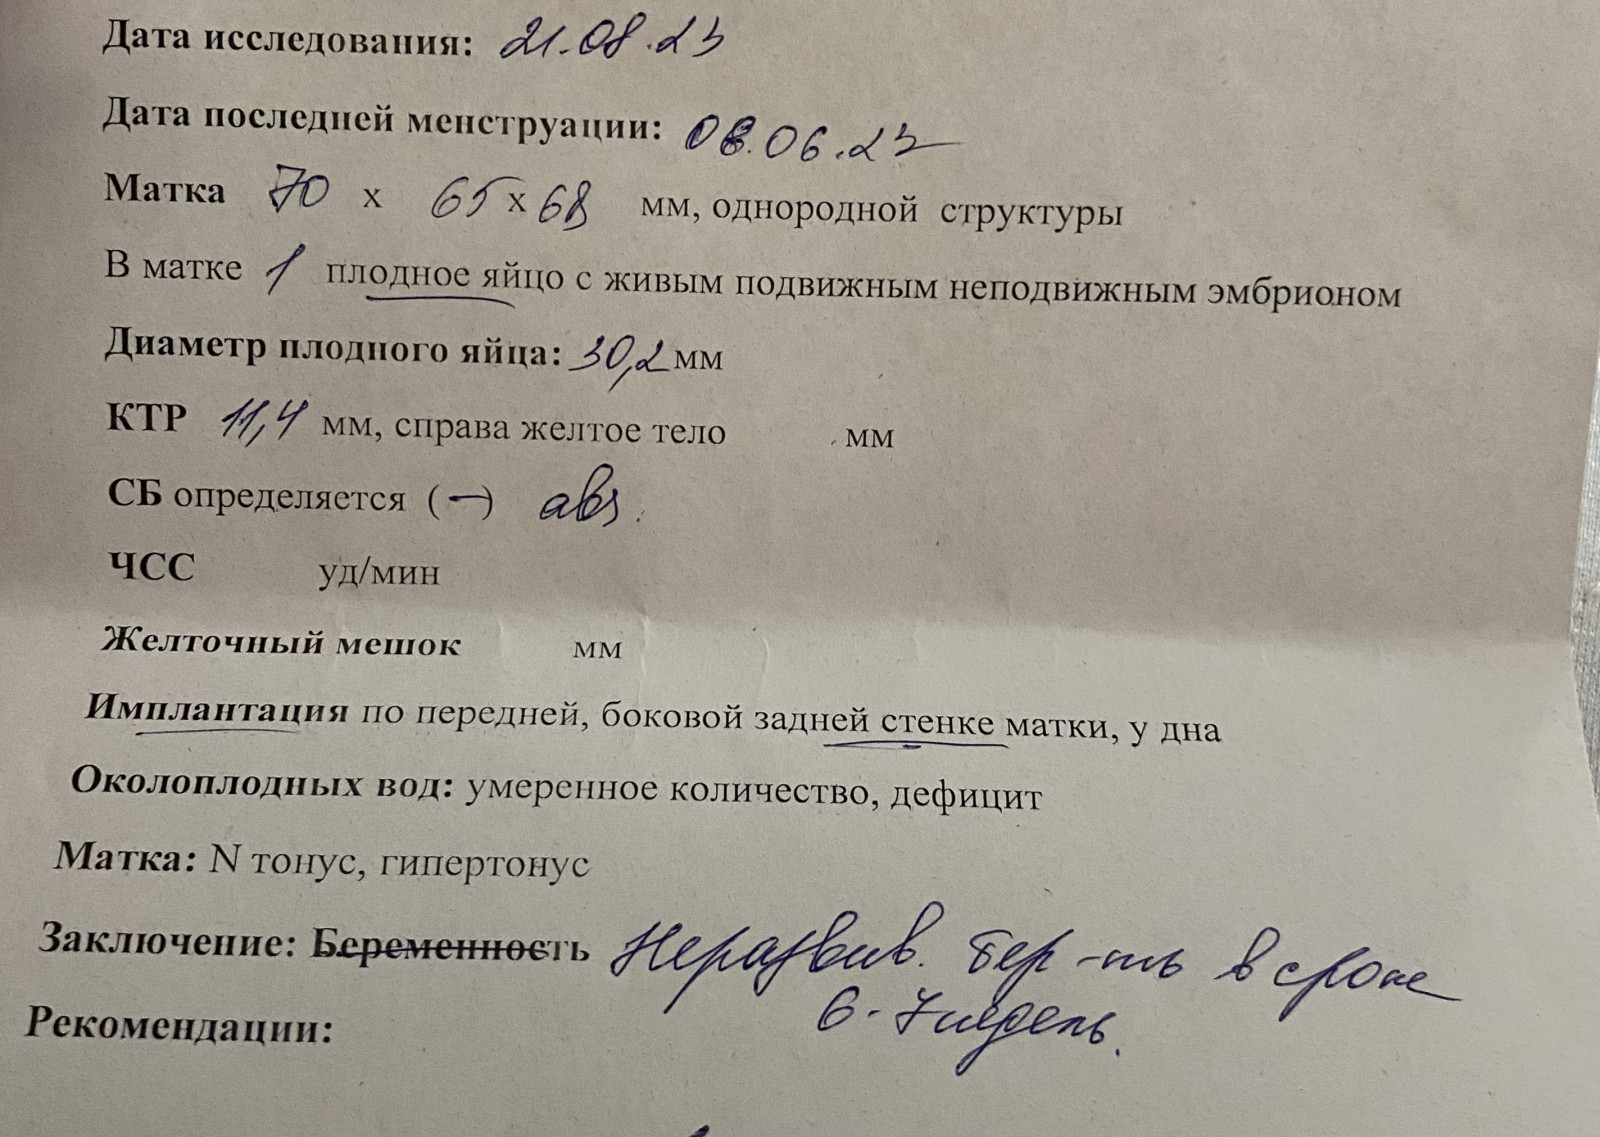 Дата исследования: 21.08.23
Дата последней менструации: 08.06.23
Матка 70 х 65 х 68 мм, однородной структуры
В матке 1 плодное яйцо с живым подвижным неподвижным эмбрионом
Диаметр плодного яйца: 30,2 мм
КТР 11,4 мм, справа желтое тело мм
СБ определяется (–) abs.
ЧСС уд/мин
Желточный мешок мм
Имплантация по передней, боковой задней стенке матки, у дна
Околоплодных вод: умеренное количество, дефицит
Матка: N тонус, гипертонус
Заключение: Беременность Неразвив. бер-ть в сроке
6-7 недель.
Рекомендации: